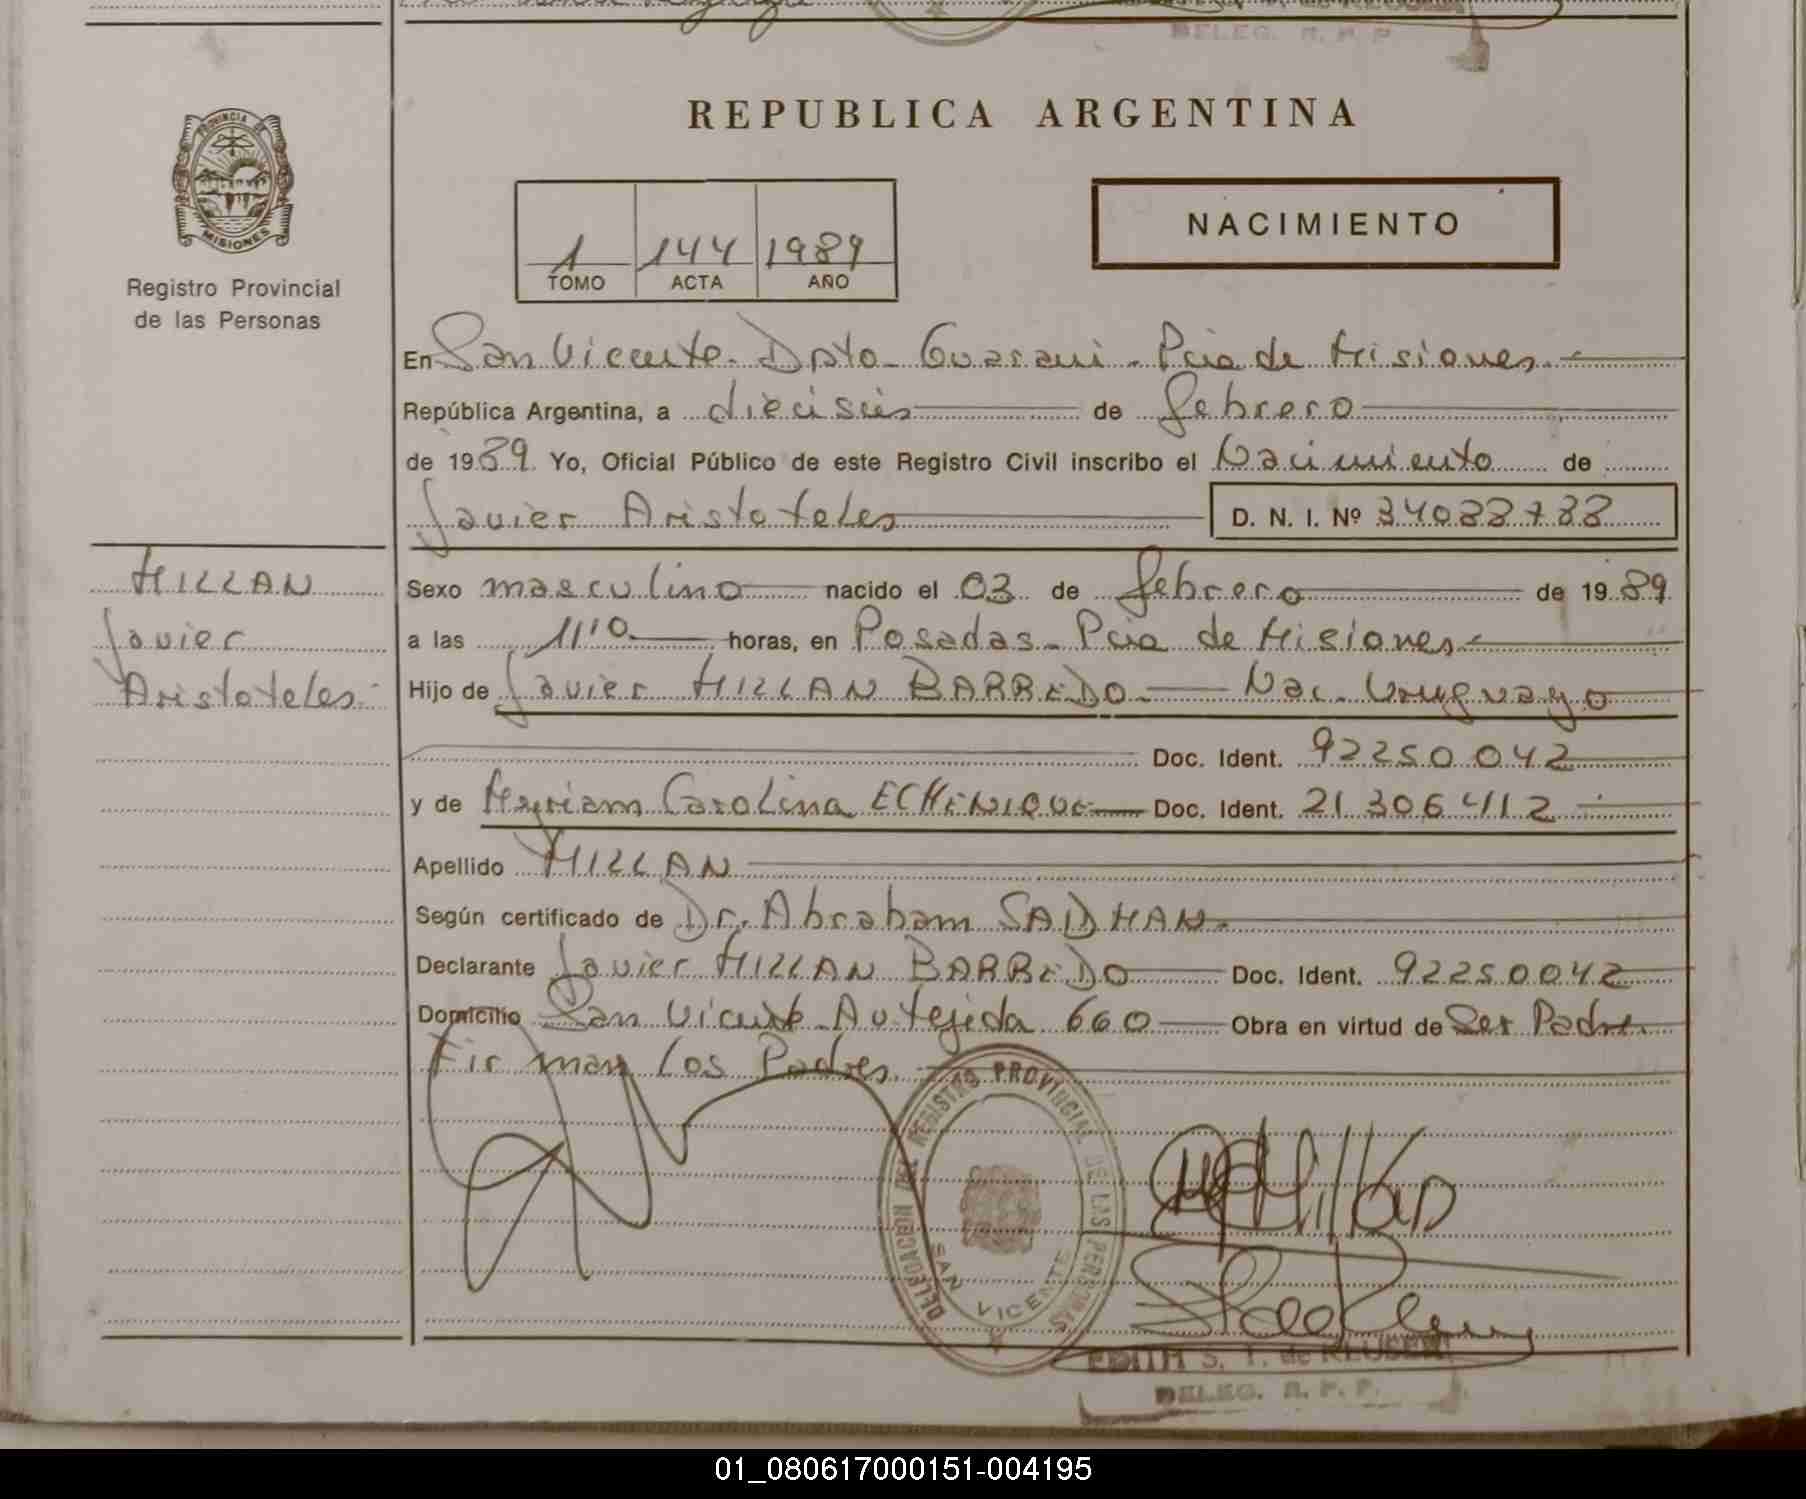 DELEG. R. P. P.
REPUBLICA ARGENTINA
PROVINCIA DE
MISIONES
Registro Provincial
de las Personas
1 144 1989
TOMO ACTA AÑO
NACIMIENTO
En San Vicente - Dpto - Guarani - Pcia de Misiones.-
República Argentina, a dieciseis de febrero
de 1989. Yo, Oficial Público de este Registro Civil inscribo el Nacimiento de
Javier Aristoteles D. N. I. Nº 34088788
MILLAN
Javier
Aristoteles.-
Sexo masculino nacido el 03 de febrero de 1989
a las 11'10 horas, en Posadas - Pcia de Misiones.-
Hijo de Javier MILLAN BARREDO.- Nac. Uruguayo
Doc. Ident. 92250042
y de Myriam Carolina ECHENIQUE Doc. Ident. 21.306.412
Apellido MILLAN
Según certificado de Dr. Abraham SADMAN.
Declarante Javier MILLAN BARREDO Doc. Ident. 92250042
Domicilio San Vicente - Av Tejeda 660 Obra en virtud de Ser Padre.
Firman los Padres.
DELEGACION DEL REGISTRO PROVINCIAL DE LAS PERSONAS
SAN VICENTE
EDITH S. T. de KLUSEN
DELEG. R. P. P.
01_080617000151-004195